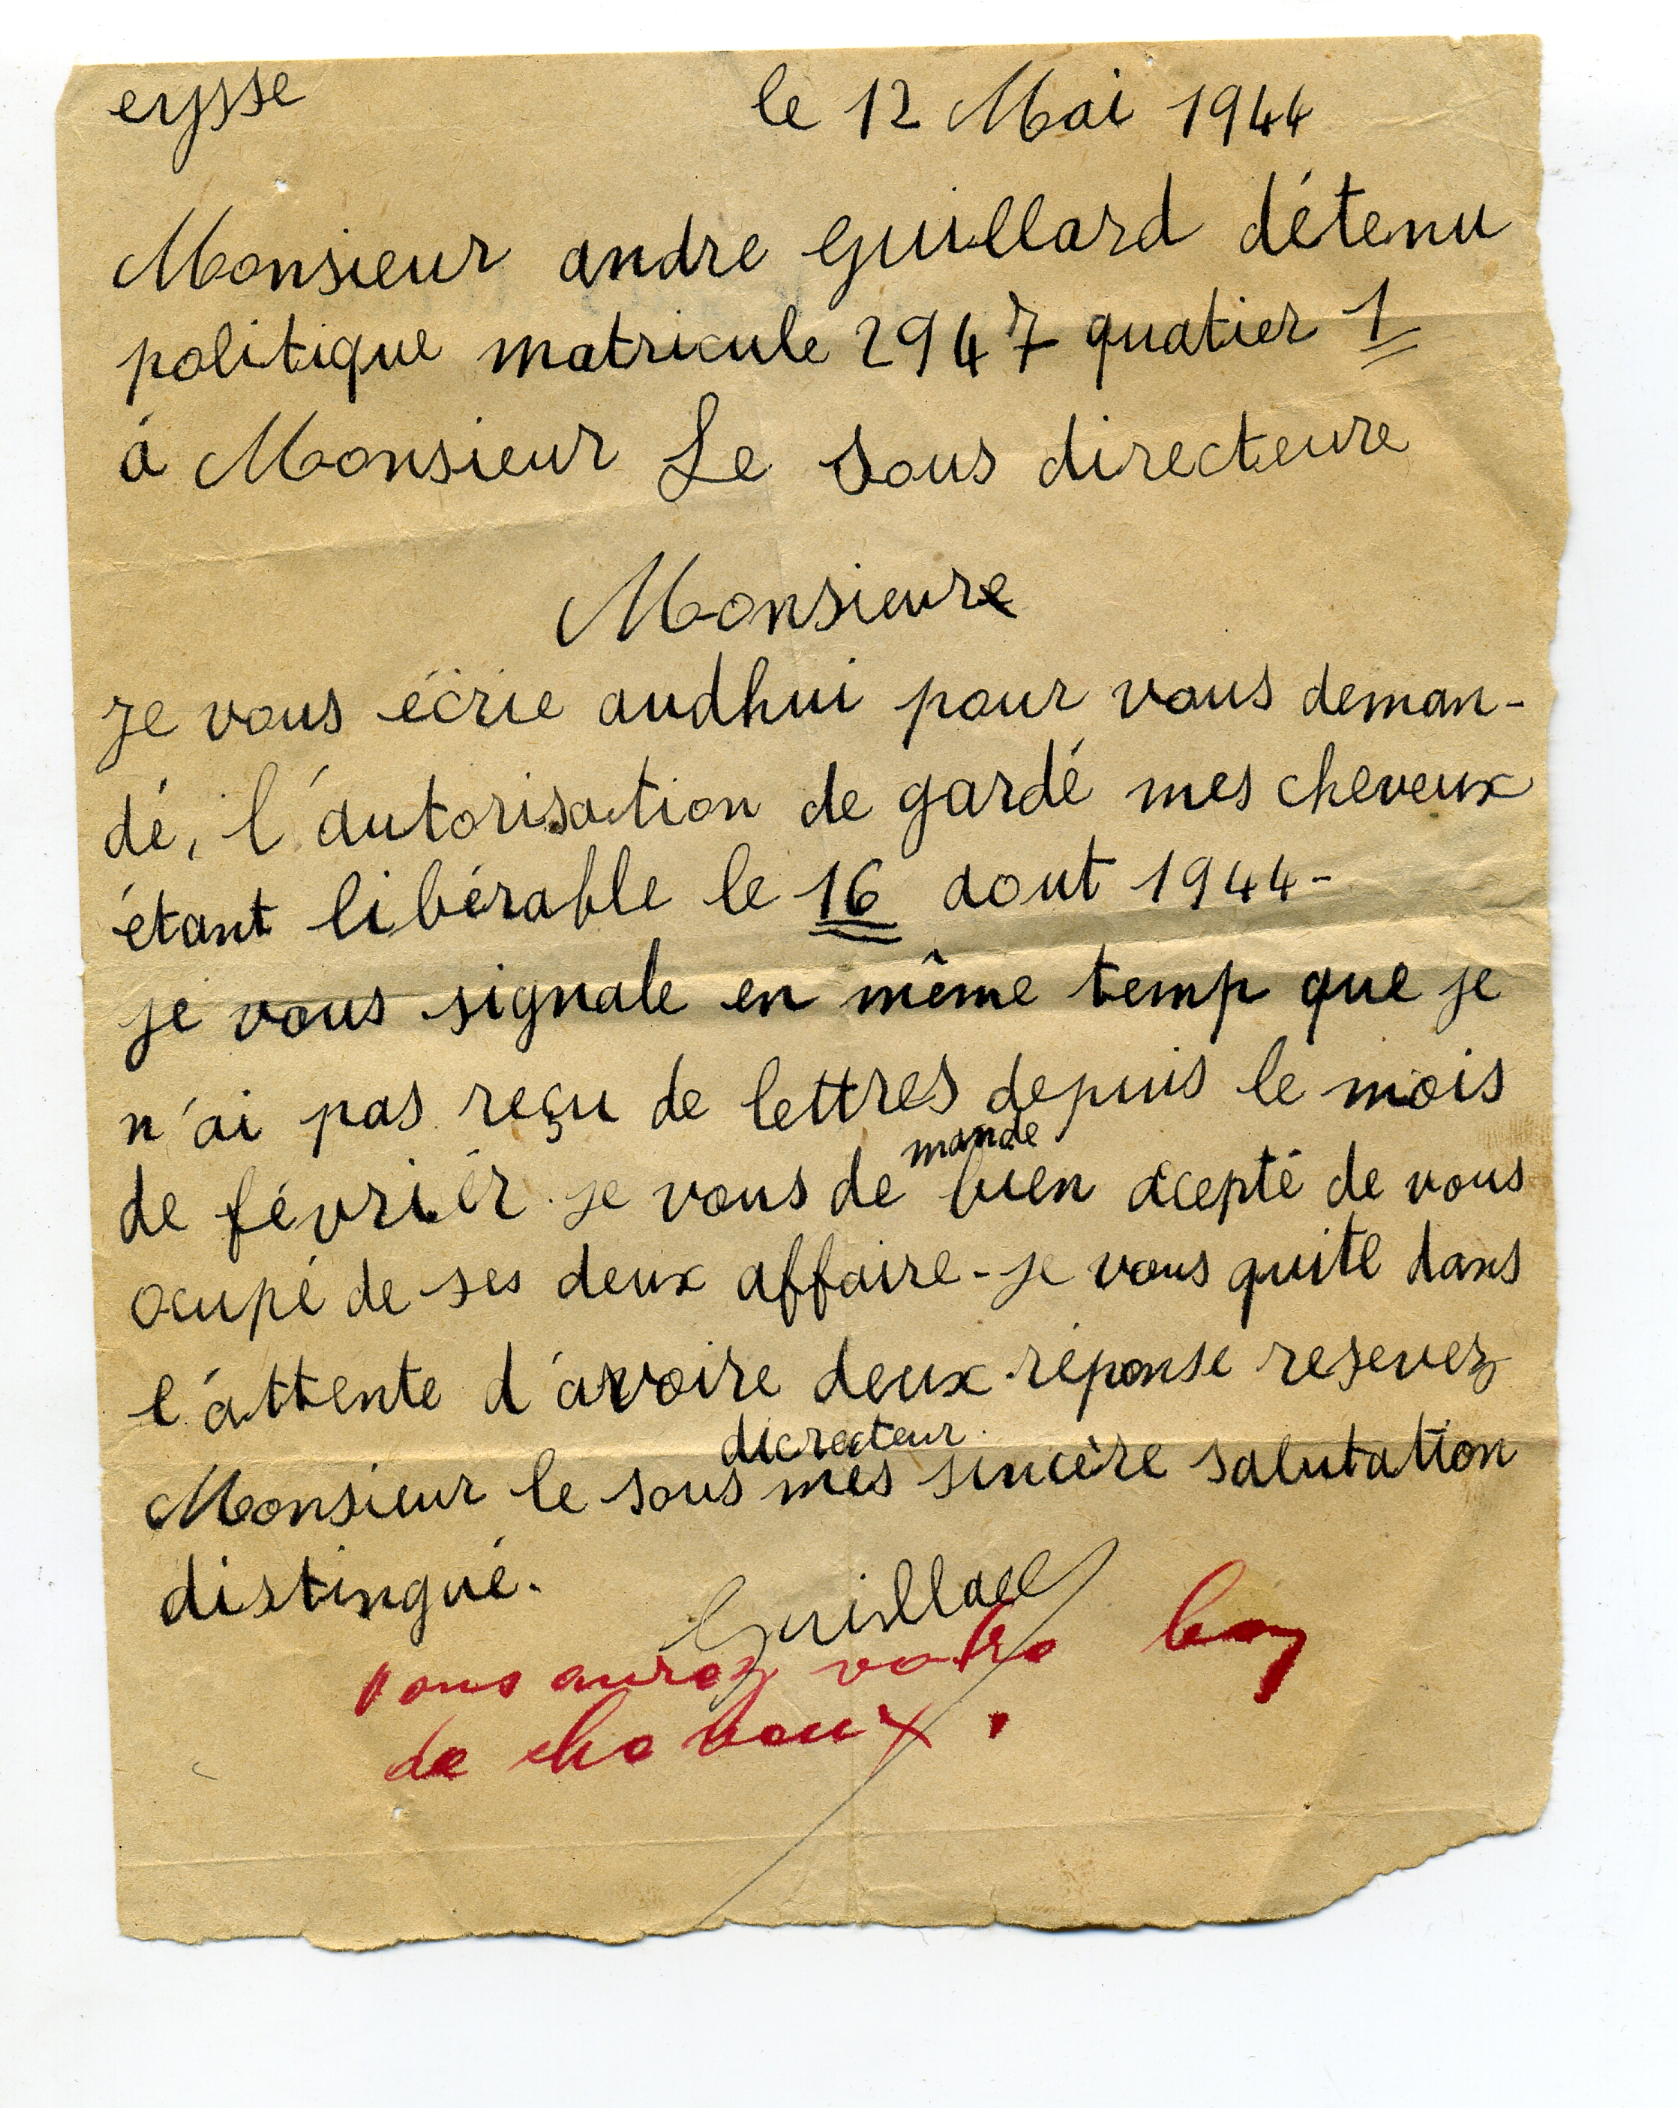 eysse le 12 Mai 1944
Monsieur andre Guillard détenu
politique matricule 2947 quatier 1
à Monsieur Le Sous directeure
Monsieur
Je vous écrie audhui pour vous deman-
dé, l'autorisation de gardé mes cheveux
étant libérable le 16 aout 1944-
je vous signale en même temp que je
n'ai pas reçu de lettres depuis le mois
de février. je vous demande bien acepté de vous
ocupé de ses deux affaire - je vous quite dans
l'attente d'avoire deux réponse resevez
Monsieur le sous dicrecteur mes sincère salutation
distingué.
Guillard
vous aurez votre
de cheveux.